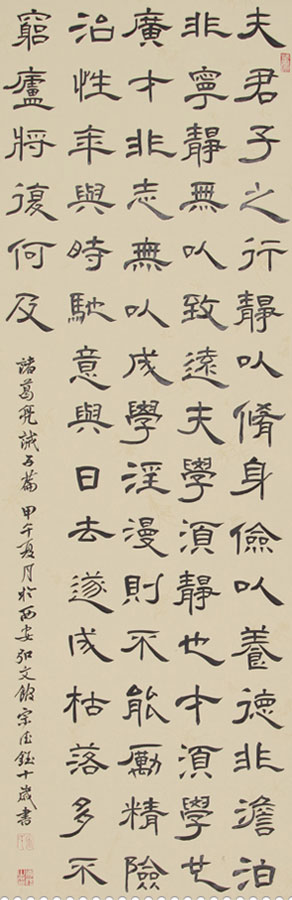 夫君子之行靜以脩身儉以養德非澹泊
非寧靜無以致遠夫學須靜也才須學也
廣才非志無以成學淫漫則不能勵精險
治性年與時馳意與日去遂成枯落多不
窮廬將復何及
諸葛亮誡子篇 甲午夏月於西安弘文館 宗德鈺十歲書